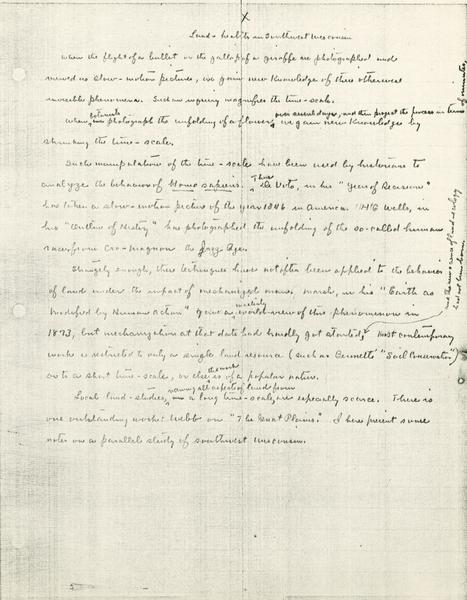 X
Land-health in Southwest Wisconsin
When the flight of a bullet or the gallop of a giraffe are photographed and
viewed as slow-motion pictures, we gain new knowledge of these otherwise
invisible phenomena. Such an inquiry magnifies the time-scale.
When botanists photograph the unfolding of a flower over several days, and then project the process in terms of minutes, we gain new knowledge by
shrinking the time-scale.
Such manipulations of the time-scale have been used by historians to
analyze the behavior of Homo sapiens. Thus De Voto, in his "Year of Decision"
has taken a slow-motion picture of the year 1846 in America. H G Wells, in
his "Outline of History" has photographed the unfolding of the so-called human
race, from Cro-magnon to Jazz Age.
Strangely enough, these techniques have not often been applied to the behavior
of land under the impact of mechanized man. Marsh, in his "Earth as
Modified by Human Action" gave a world-view of this phenomenon in
1873, but mechanization at that date had hardly got started, and the new science of land ecology had not been born. Most contemporary
work is restricted to only a single land resource (such as Bennett's "Soil Conservation")
or to a short time-scale, or else is of a popular nature.
Local land-studies, covering all aspects of land from a long time-scale, are especially scarce. There is
one outstanding work: Webb on "The Great Plains." I here present some
notes on a parallel study of southwest Wisconsin.